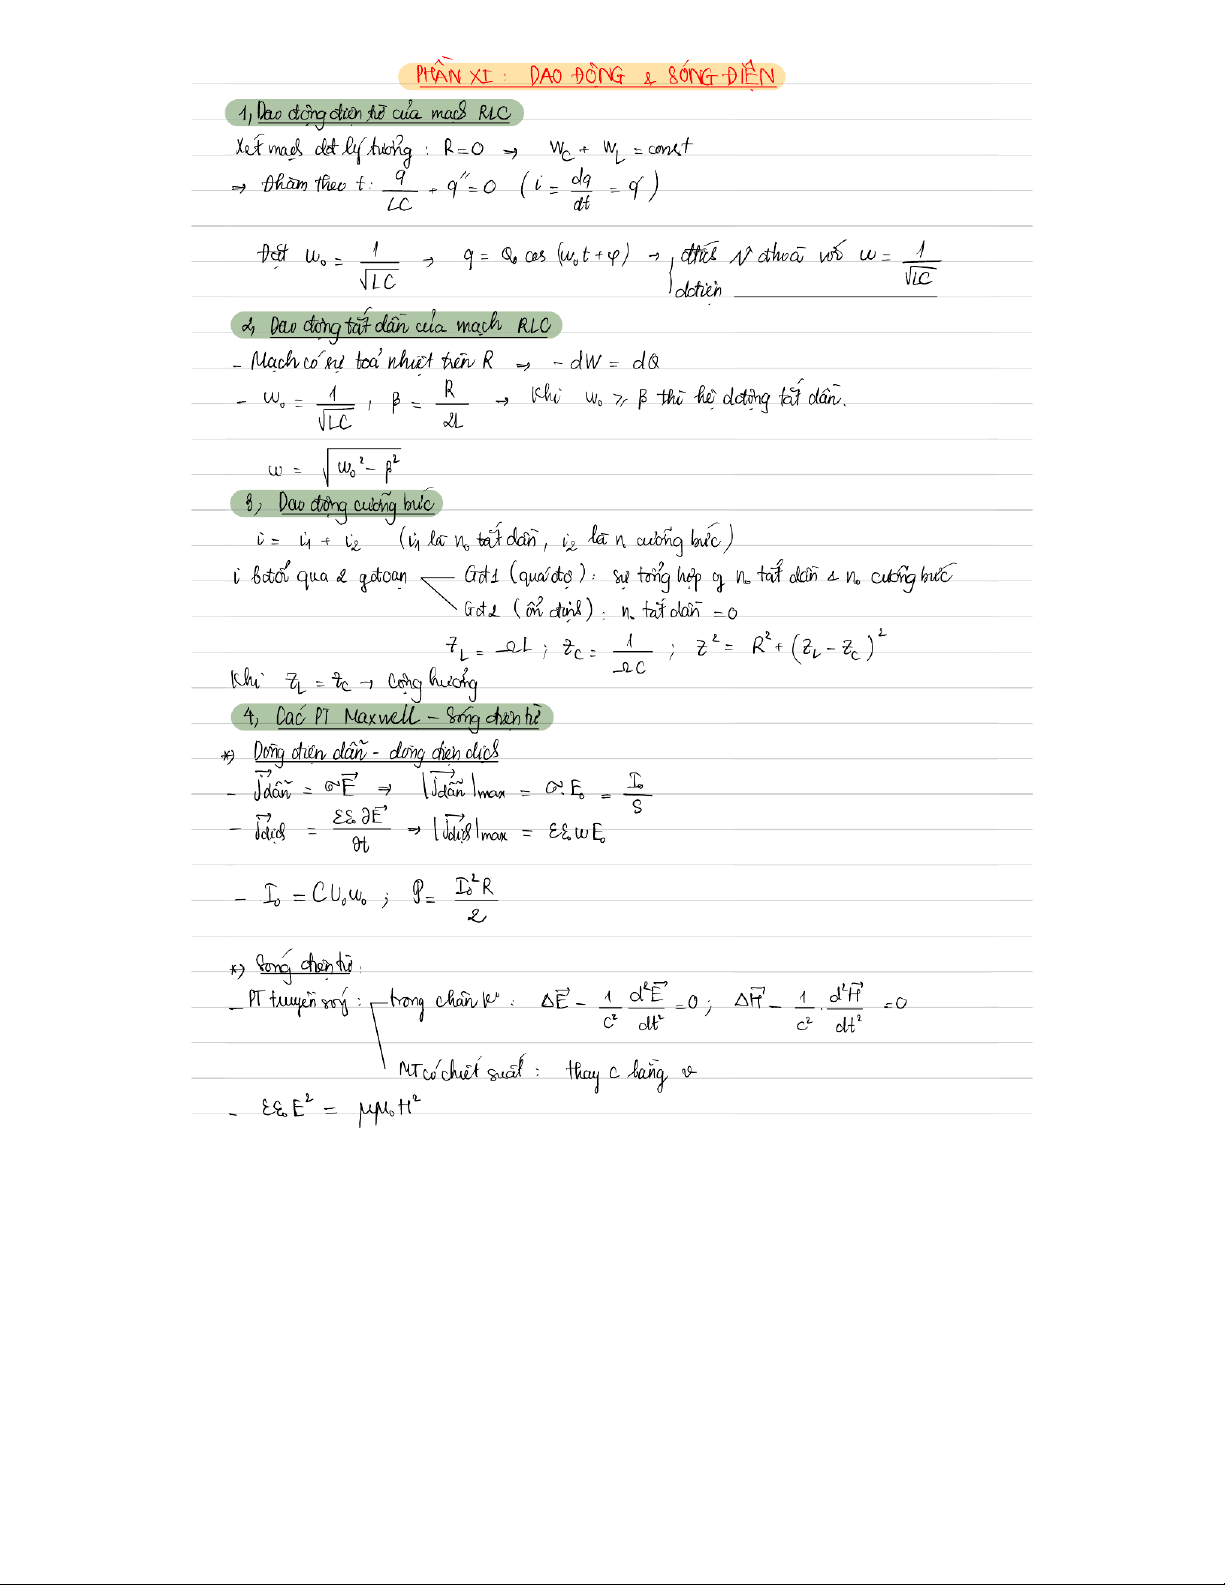 PHẦN XI : DAO ĐỘNG & SÓNG ĐIỆN
1, Dao động điện từ của mạch RLC
Xét mạch đđt lý tưởng : R=0 → W_C + W_L = const
→ Đhàm theo t: q/LC + q'' = 0 ( i = dq/dt = q' )
Đặt ω₀ = 1/√LC → q = Q₀ cos (ω₀t + φ) → đtích đhoà với ω = 1/√LC
dđiện
2, Dao động tắt dần của mạch RLC
- Mạch có sự toả nhiệt trên R → - dW = dQ
- ω₀ = 1/√LC , β = R/2L → Khi ω₀ ≥ β thì hệ dđộng tắt dần.
ω = √(ω₀² - β²)
3, Dao động cưỡng bức
i = i₁ + i₂ (i₁ là n₀ tắt dần, i₂ là n cưỡng bức)
i qua 2 gđoạn Gđ1 (quá độ) : sự tổng hợp n₀ tắt dần & n₀ cưỡng bức
Gđ2 (ổn định) : n₀ tắt dần = 0
Z_L = ΩL ; Z_C = 1/ΩC ; Z² = R² + (Z_L - Z_C)²
Khi Z_L = Z_C → Cộng hưởng
4, Các PT Maxwell - Sóng điện từ
*) Dòng điện dẫn - dòng điện dịch
- J⃗dẫn = σE⃗ → |J⃗dẫn|max = σ.E₀ = I₀/S
- J⃗dịch = εε₀∂E⃗/∂t → |J⃗dịch|max = εε₀ωE₀
- I₀ = CU₀ω₀ ; P = I₀²R/2
*) Sóng điện từ :
- PT truyền sóng : trong chân k⁰ : ΔE⃗ - 1/c² d²E⃗/dt² = 0 ; ΔH⃗ - 1/c² . d²H⃗/dt² = 0
MT có chiết suất : thay c bằng v
- εε₀E² = μμ₀H²